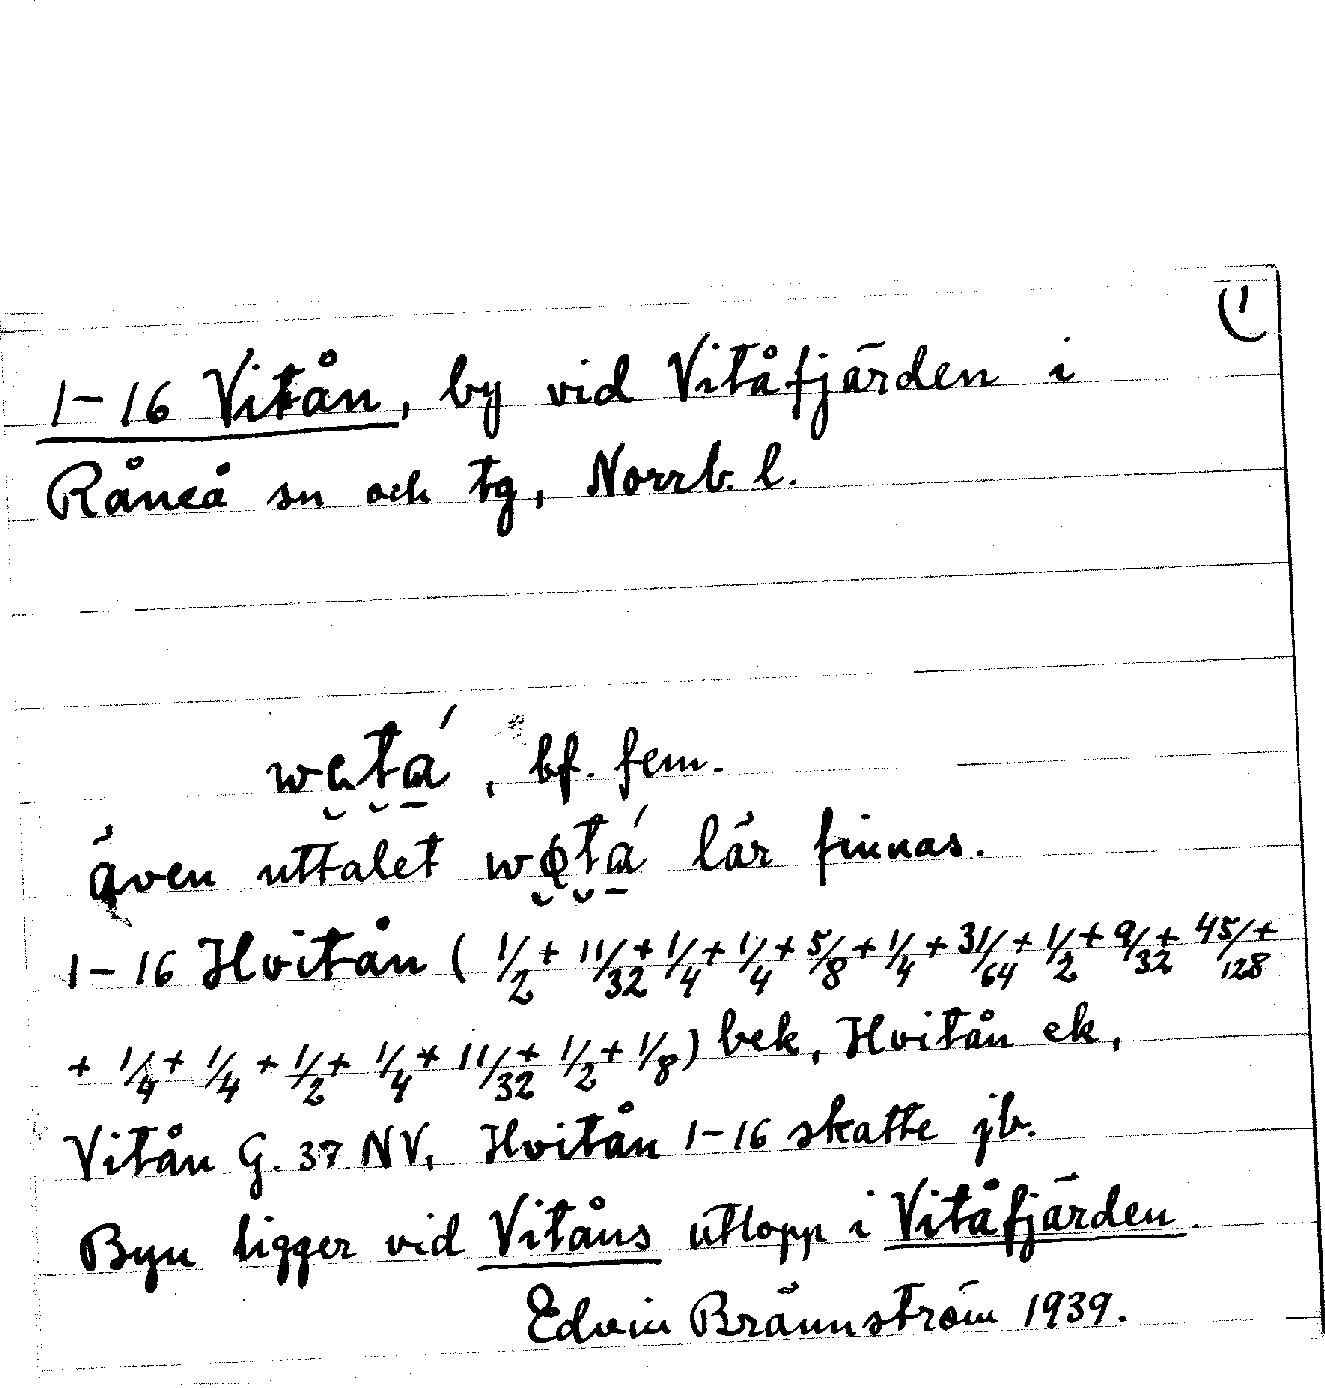 (1
1-16 Vitån, by vid Vitåfjärden i
Råneå sn och tg, Norrb. l.
, bf. fem.
även uttalet lär finnas.
1-16 Hvitån ( 1/2 + 11/32 + 1/4 + 1/4 + 5/8 + 1/4 + 31/64 + 1/2 + 9/32 + 45/128 +
+ 1/4 + 1/4 + 1/2 + 1/4 + 11/32 + 1/2 + 1/8) bek, Hvitån ek,
Vitån G. 37 NV, Hvitån 1-16 skatte jb.
Byn ligger vid Vitåns utlopp i Vitåfjärden.
Edvin Brännström 1939.